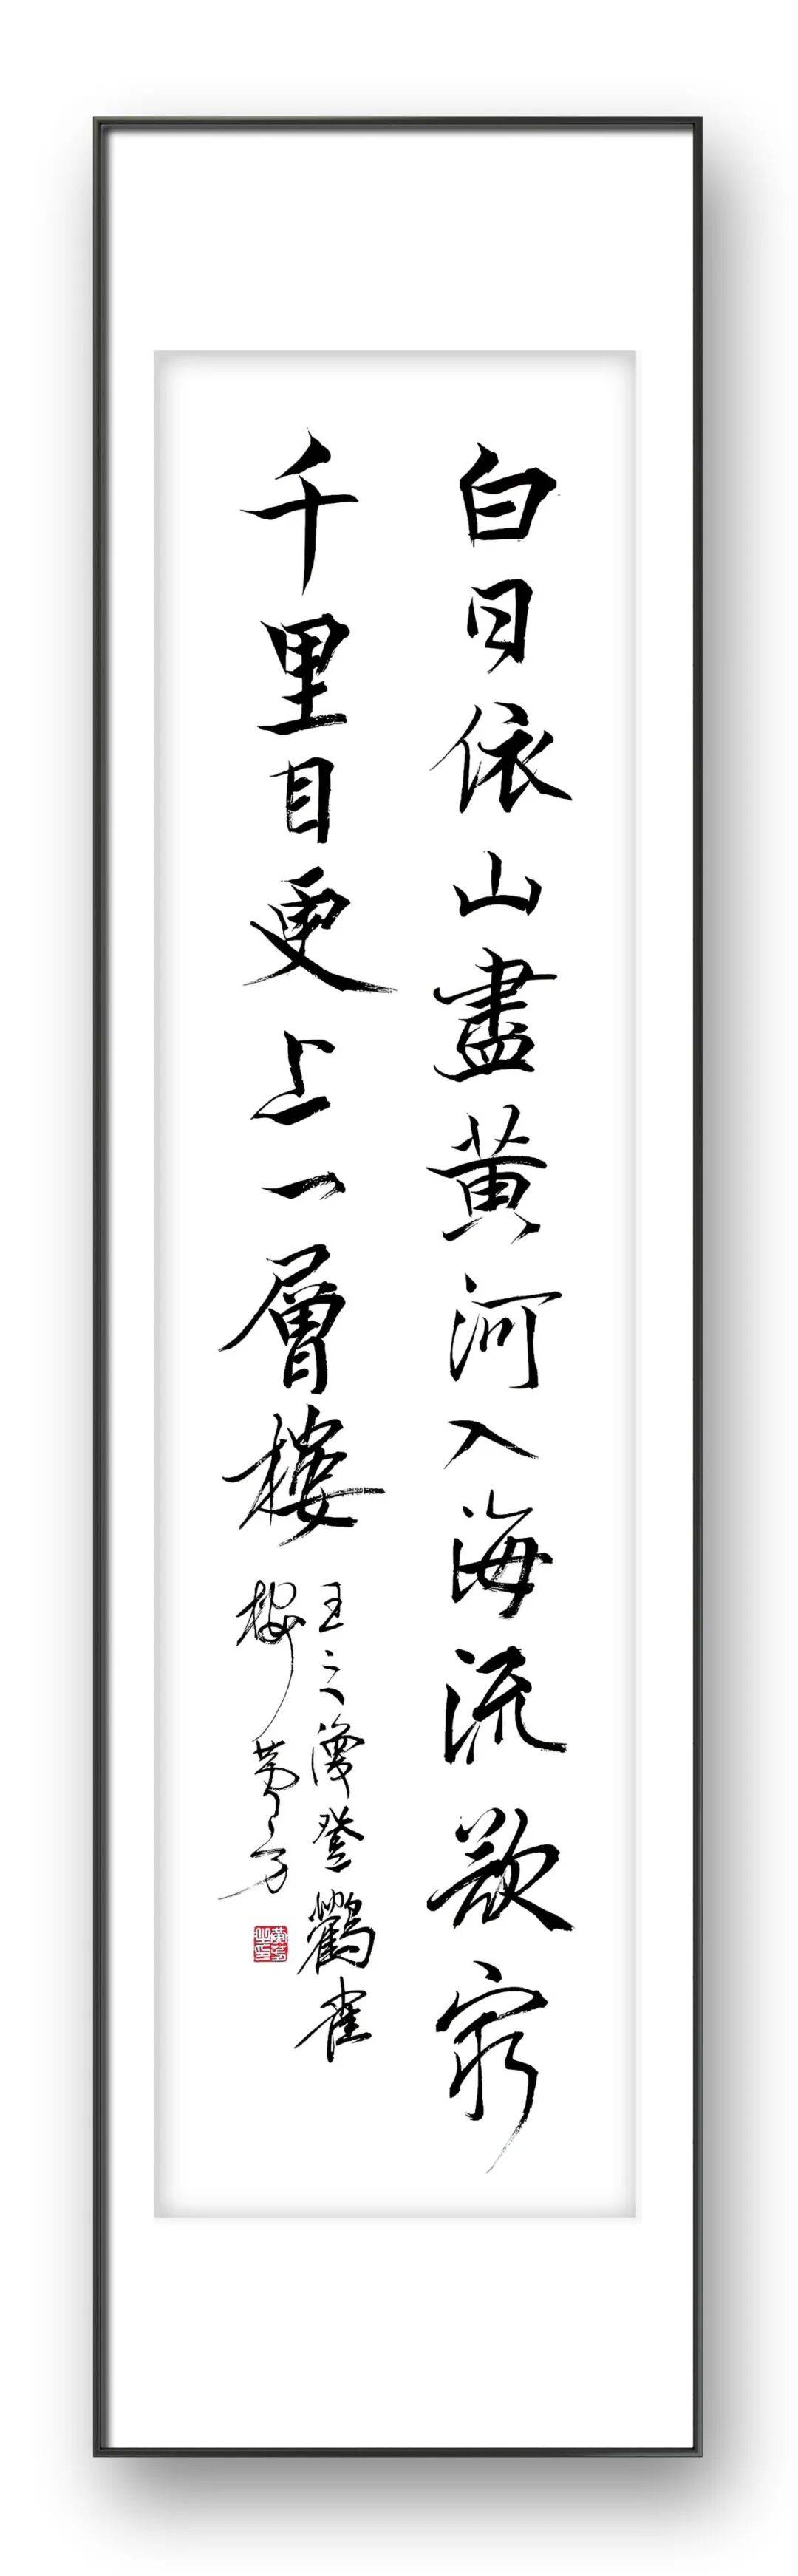 白日依山盡黄河入海流欲窮
千里目更上一層樓
王之渙登鸛雀
樓